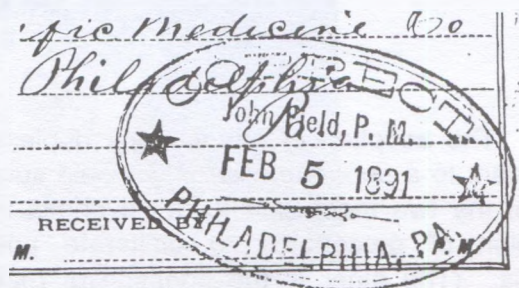 fic Medicine Co
Philadelphia
CORRECT
John Field, P. M.
FEB 5 1891
PHILADELPHIA, PA.
RECEIVED BY
M. P. M.